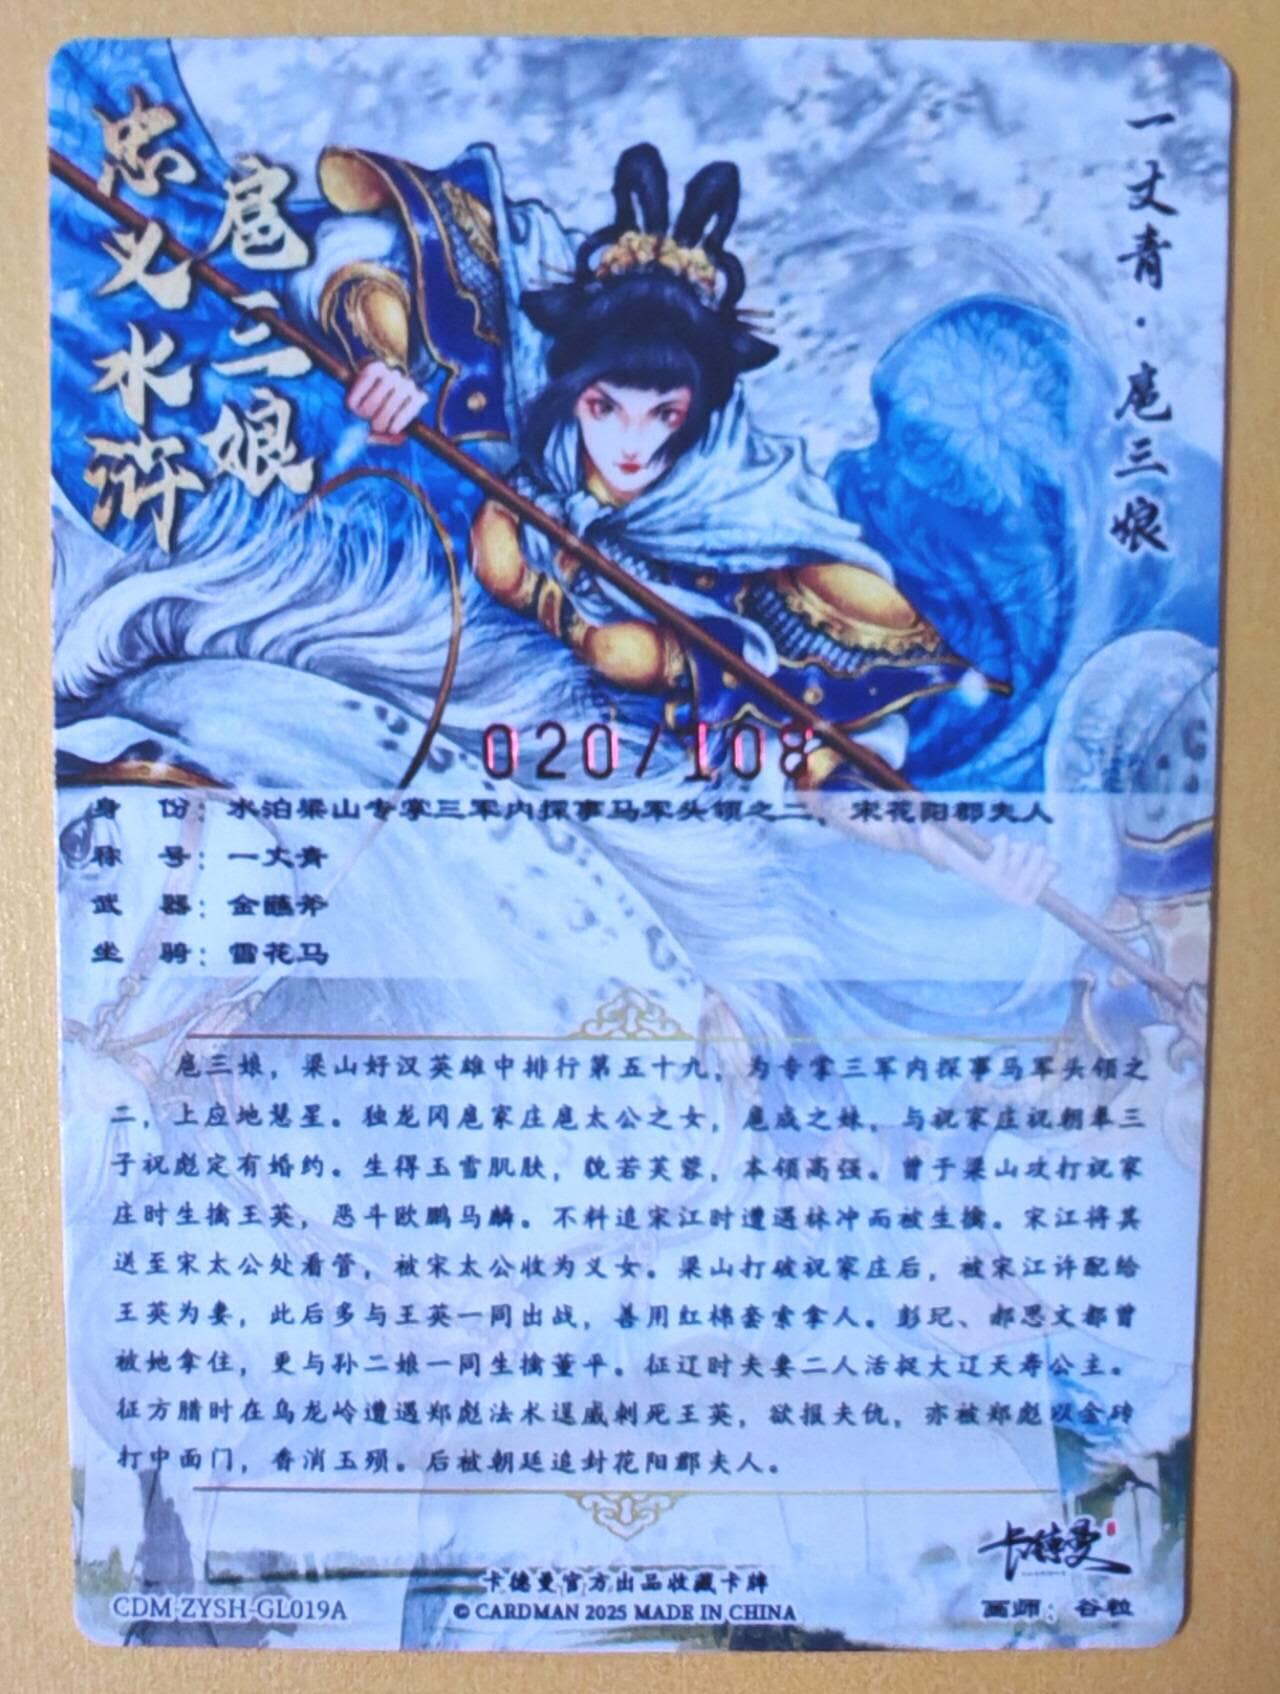 忠义水浒
扈三娘
一丈青·扈三娘
020/108
身 份：水泊梁山专掌三军内探事马军头领之二、宋花阳郡夫人
称 号：一丈青
武 器：金蘸斧
坐 骑：雪花马
扈三娘，梁山好汉英雄中排行第五十九，为专掌三军内探事马军头领之
二，上应地慧星。独龙冈扈家庄扈太公之女，扈成之妹，与祝家庄祝朝奉三
子祝彪定有婚约。生得玉雪肌肤，貌若芙蓉，本领高强。曾于梁山攻打祝家
庄时生擒王英，恶斗欧鹏马麟。不料追宋江时遭遇林冲而被生擒。宋江将其
送至宋太公处看管，被宋太公收为义女。梁山打破祝家庄后，被宋江许配给
王英为妻，此后多与王英一同出战，善用红棉套索拿人。彭玘、郝思文都曾
被她拿住，更与孙二娘一同生擒董平。征辽时夫妻二人活捉大辽天寿公主。
征方腊时在乌龙岭遭遇郑彪法术逞威刺死王英，欲报夫仇，亦被郑彪以金砖
打中面门，香消玉殒。后被朝廷追封花阳郡夫人。
卡德曼
卡德曼官方出品收藏卡牌
CDM-ZYSH-GL019A
© CARDMAN 2025 MADE IN CHINA
画师：谷粒